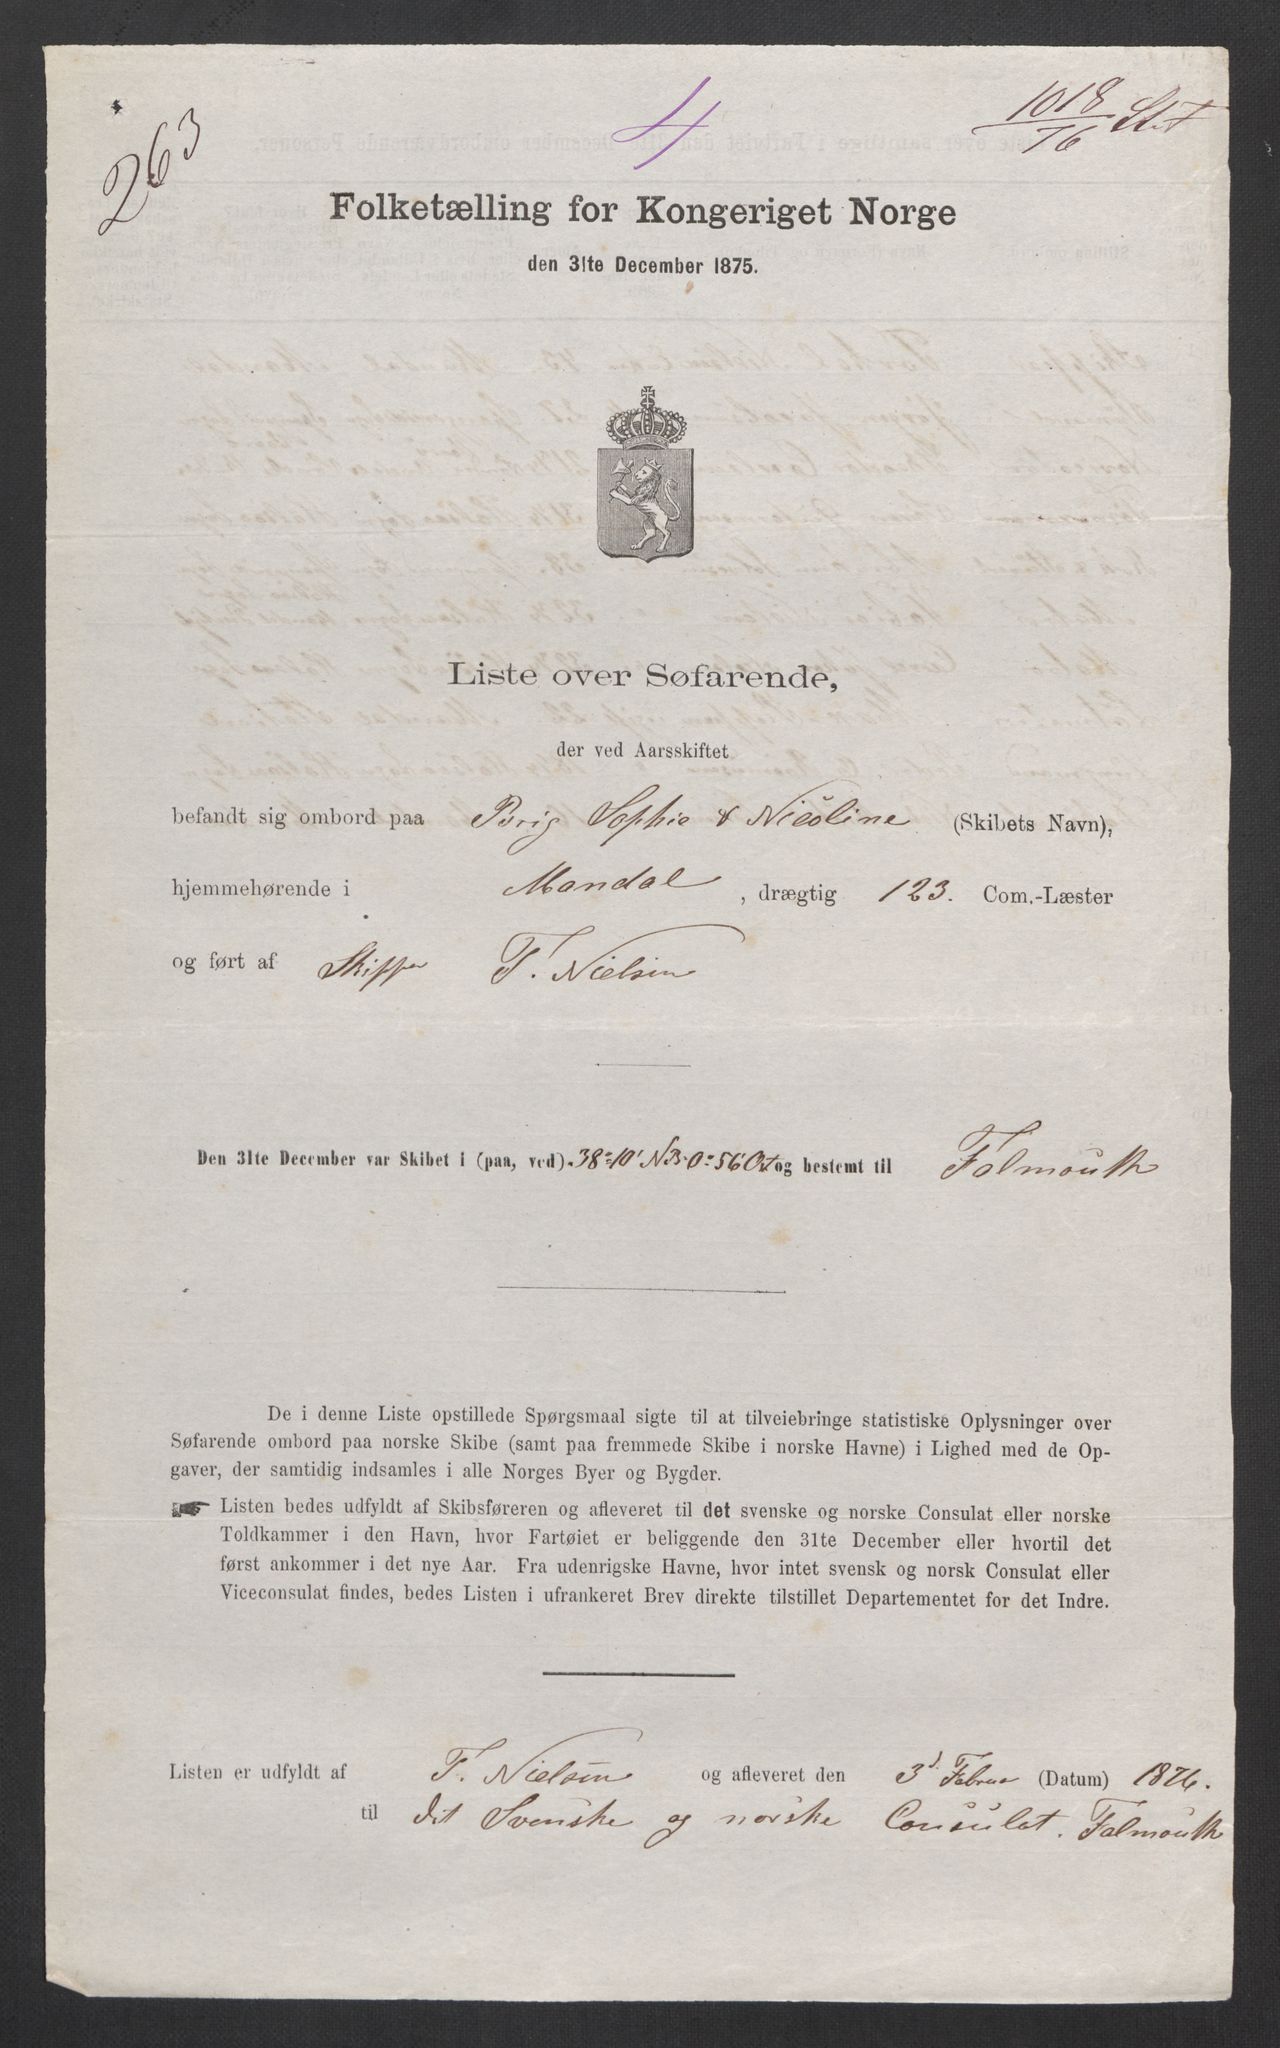 263
4
1018/76 Stat
Folketælling for Kongeriget Norge
den 31te December 1875.
Liste over Søfarende,
der ved Aarsskiftet
befandt sig ombord paa Brig Sophie & Nicoline (Skibets Navn),
hjemmehørende i Mandal, drægtig 123. Com.-Læster
og ført af Skipper T. Nielsen
Den 31te December var Skibet i (paa, ved) 38°-10' N Br 0°-56' Ost og bestemt til Falmouth
De i denne Liste opstillede Spørgsmaal sigte til at tilveiebringe statistiske Oplysninger over
Søfarende ombord paa norske Skibe (samt paa fremmede Skibe i norske Havne) i Lighed med de Op-
gaver, der samtidig indsamles i alle Norges Byer og Bygder.
☛ Listen bedes udfyldt af Skibsføreren og afleveret til det svenske og norske Consulat eller norske
Toldkammer i den Havn, hvor Fartøiet er beliggende den 31te December eller hvortil det
først ankommer i det nye Aar. Fra udenrigske Havne, hvor intet svensk og norsk Consulat eller
Viceconsulat findes, bedes Listen i ufrankeret Brev direkte tilstillet Departementet for det Indre.
Listen er udfyldt af T. Nielsen og afleveret den 3d Februar (Datum) 1876.
til det Svenske og norske Consulat. Falmouth